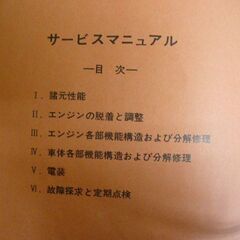 サービスマニュアル
―目 次―
Ⅰ. 諸元性能
Ⅱ. エンジンの脱着と調整
Ⅲ. エンジン各部機能構造および分解修理
Ⅳ. 車体各部機能構造および分解修理
Ⅴ. 電装
Ⅵ. 故障探求と定期点検